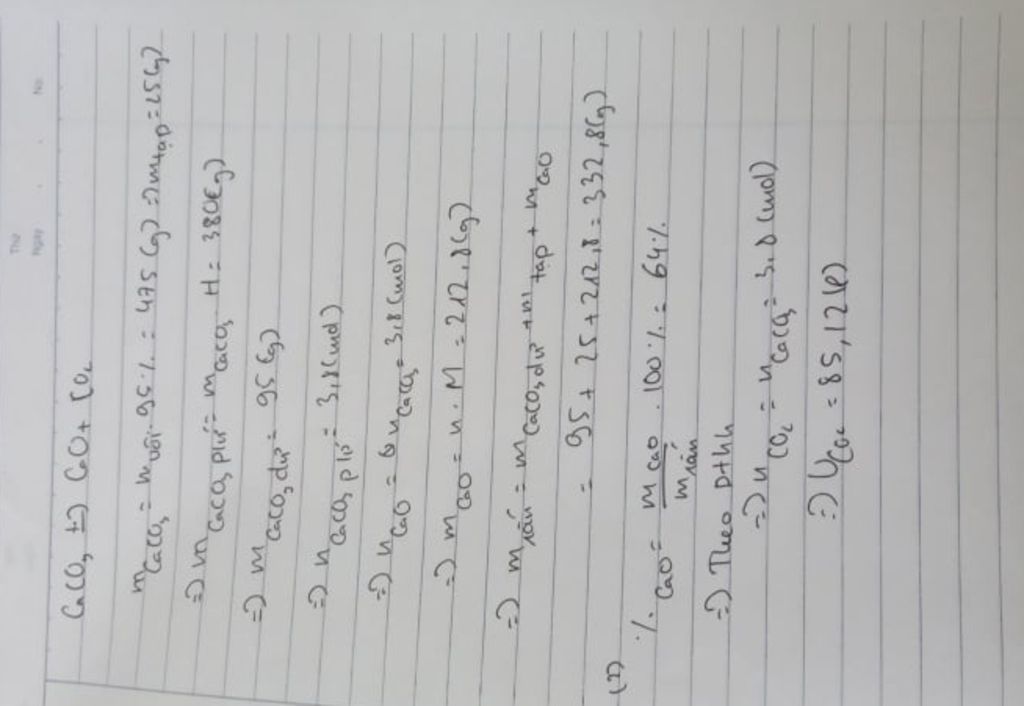 Thứ
Ngày . . No.
CaCO₃ t⁰→ CaO + CO₂
mCaCO₃ = m vôi . 95% = 475 (g) => m tạp = 25 (g)
=> m CaCO₃ pứ = m CaCO₃ . H = 380 (g)
=> m CaCO₃ dư = 95 (g)
=> n CaCO₃ pứ = 3,8 (mol)
=> n CaO = n CaCO₃ = 3,8 (mol)
=> m CaO = n . M = 212,8 (g)
=> m rắn = m CaCO₃ dư + m tạp + m CaO
= 95 + 25 + 212,8 = 332,8 (g)
(2) % CaO = m CaO / m rắn . 100% = 64%
=> Theo pthh
=> n CO₂ = n CaCO₃ = 3,8 (mol)
=> V CO₂ = 85,12 (l)